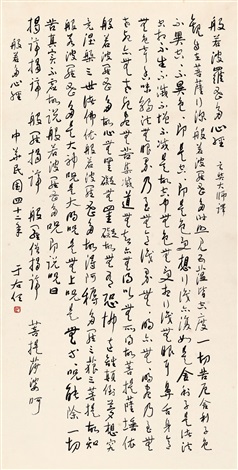 般若波羅蜜多心經 玄奘大師譯
觀自在菩薩行深般若波羅蜜多時照見五蘊皆空度一切苦厄舍利子色
不異空空不異色色即是空空即是色受想行識亦復如是舍利子是諸法
空相不生不滅不垢不淨不增不減是故空中無色無受想行識無眼耳鼻舌身意
無色聲香味觸法無眼界乃至無意識界無無明亦無無明盡乃至無
老死亦無老死盡無苦集滅道無智亦無得以無所得故菩提薩埵依
般若波羅蜜多故心無罣礙無罣礙故無有恐怖遠離顛倒夢想究
竟涅槃三世諸佛依般若波羅蜜多故得阿耨多羅三藐三菩提故知
般若波羅蜜多是大神咒是大明咒是無上咒是無等等咒能除一切
苦真實不虛故說般若波羅蜜多咒即說咒曰
揭諦揭諦 般羅揭諦 般羅僧揭諦 菩提莎婆訶
般若心經 中華民國四十二年 于右任